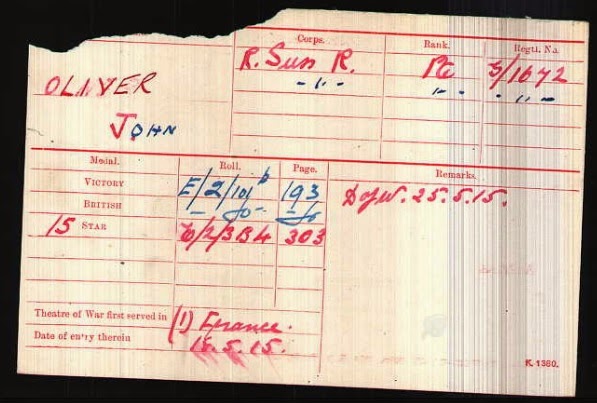 Corps. Rank. Regtl. No.
OLIVER R. Suss R. Pte G/1672
JOHN -"- "- -"-
Medal. Roll. Page. Remarks.
VICTORY E/2/101B 193 D of W. 25.5.15.
BRITISH - do - - do -
15 STAR E/2/3B4 303
Theatre of War first served in (1) France.
Date of entry therein 18.5.15.
K. 1380.